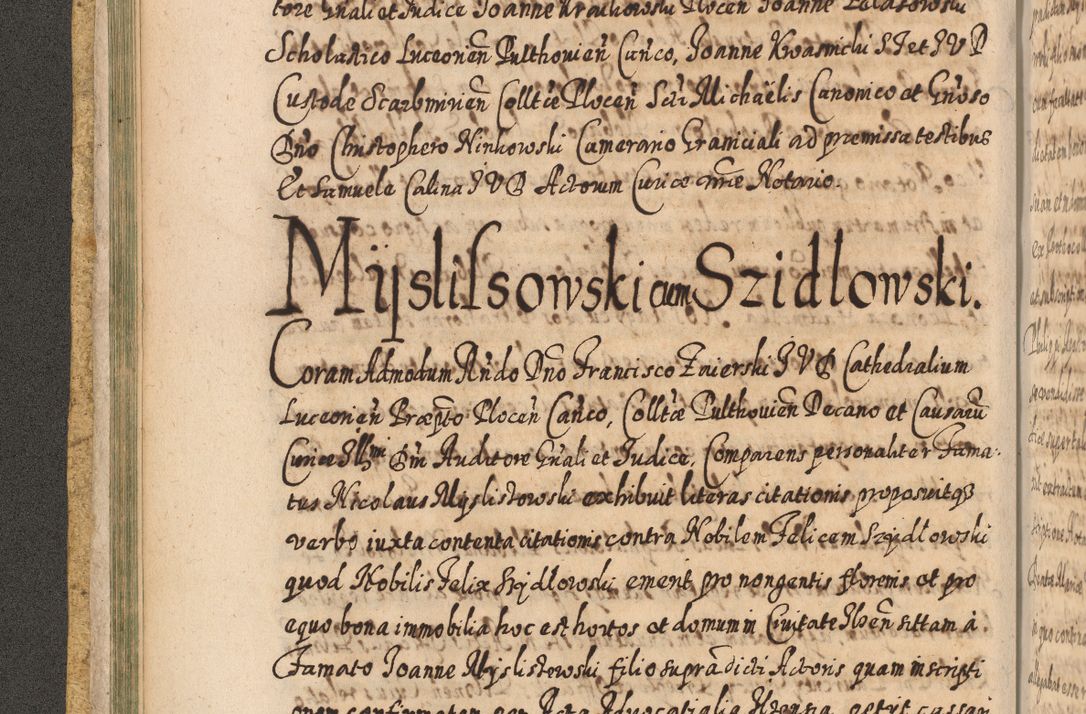 tore Gnali et Judice Joanne Krachowski Plocen Joanne
Scholastico Luceorieñ Pulthovieñ Cañco, Joanne Kwasnicki S J et J V D
Custode Scarbmirieñ Colltæ Ploceñ Scti Michaëlis Canonico et Gñoso
Dño Christophero Ninkowski Camerario Graniciali ad premissa testibus
Et Samuele Calina J V D Actorum Curiæ mñe Notario.
Myslilsowski cum Szidlowski.
Coram Admodum Rñdo Dño Francisco Zaierski J V D Cathedralium
Luceorieñ Præpto Ploceñ Cañco, Colltæ Pulthovieñ Decano et Causarũ
Curiæ Illmi Dñi Auditore Gnali et Judice, Comparens personaliter Fama-
tus Nicolaus Myslistowski exhibuit literas citationis proposuitq3
verbo iuxta contenta citationis contra Nobilem Felicem Szydlowski
quod Nobilis Felix Szydlowski emerit pro nongentis florenis et pro
equo bona immobilia hoc est hortos et domum in Civitate Ilżeñ sittam à
Famato Joanne Myslistowski filio supradicti Actoris quam inscripti
onem confirmatam per Acta Advocatialia Ilzensia petyt cassari